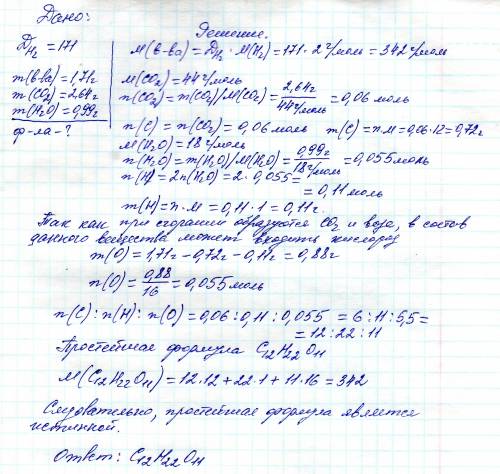 Дано:
Решение.
D H₂ = 171
m(в-ва) = 1,71г
m(CO₂) = 2,64г
m(H₂O) = 0,99г
ф-ла - ?
M(в-ва) = D H₂ · M(H₂) = 171 · 2 г/моль = 342 г/моль
M(CO₂) = 44 г/моль
n(CO₂) = m(CO₂)/M(CO₂) = 2,64г / 44 г/моль = 0,06 моль
n(C) = n(CO₂) = 0,06 моль m(C) = n·M = 0,06·12 = 0,72г
M(H₂O) = 18 г/моль
n(H₂O) = m(H₂O)/M(H₂O) = 0,99г / 18 г/моль = 0,055 моль
n(H) = 2n(H₂O) = 2 · 0,055 =
= 0,11 моль
m(H) = n · M = 0,11 · 1 = 0,11г.
Так как при сгорании образуются CO₂ и вода, в состав
данного вещества может входить кислород
m(O) = 1,71г - 0,72г - 0,11г = 0,88г
n(O) = 0,88 / 16 = 0,055 моль
n(C) : n(H) : n(O) = 0,06 : 0,11 : 0,055 = 6 : 11 : 5,5 =
= 12 : 22 : 11
Простейшая формула C₁₂H₂₂O₁₁
M(C₁₂H₂₂O₁₁) = 12·12 + 22·1 + 11·16 = 342
Следовательно, простейшая формула является
истинной.
Ответ: C₁₂H₂₂O₁₁